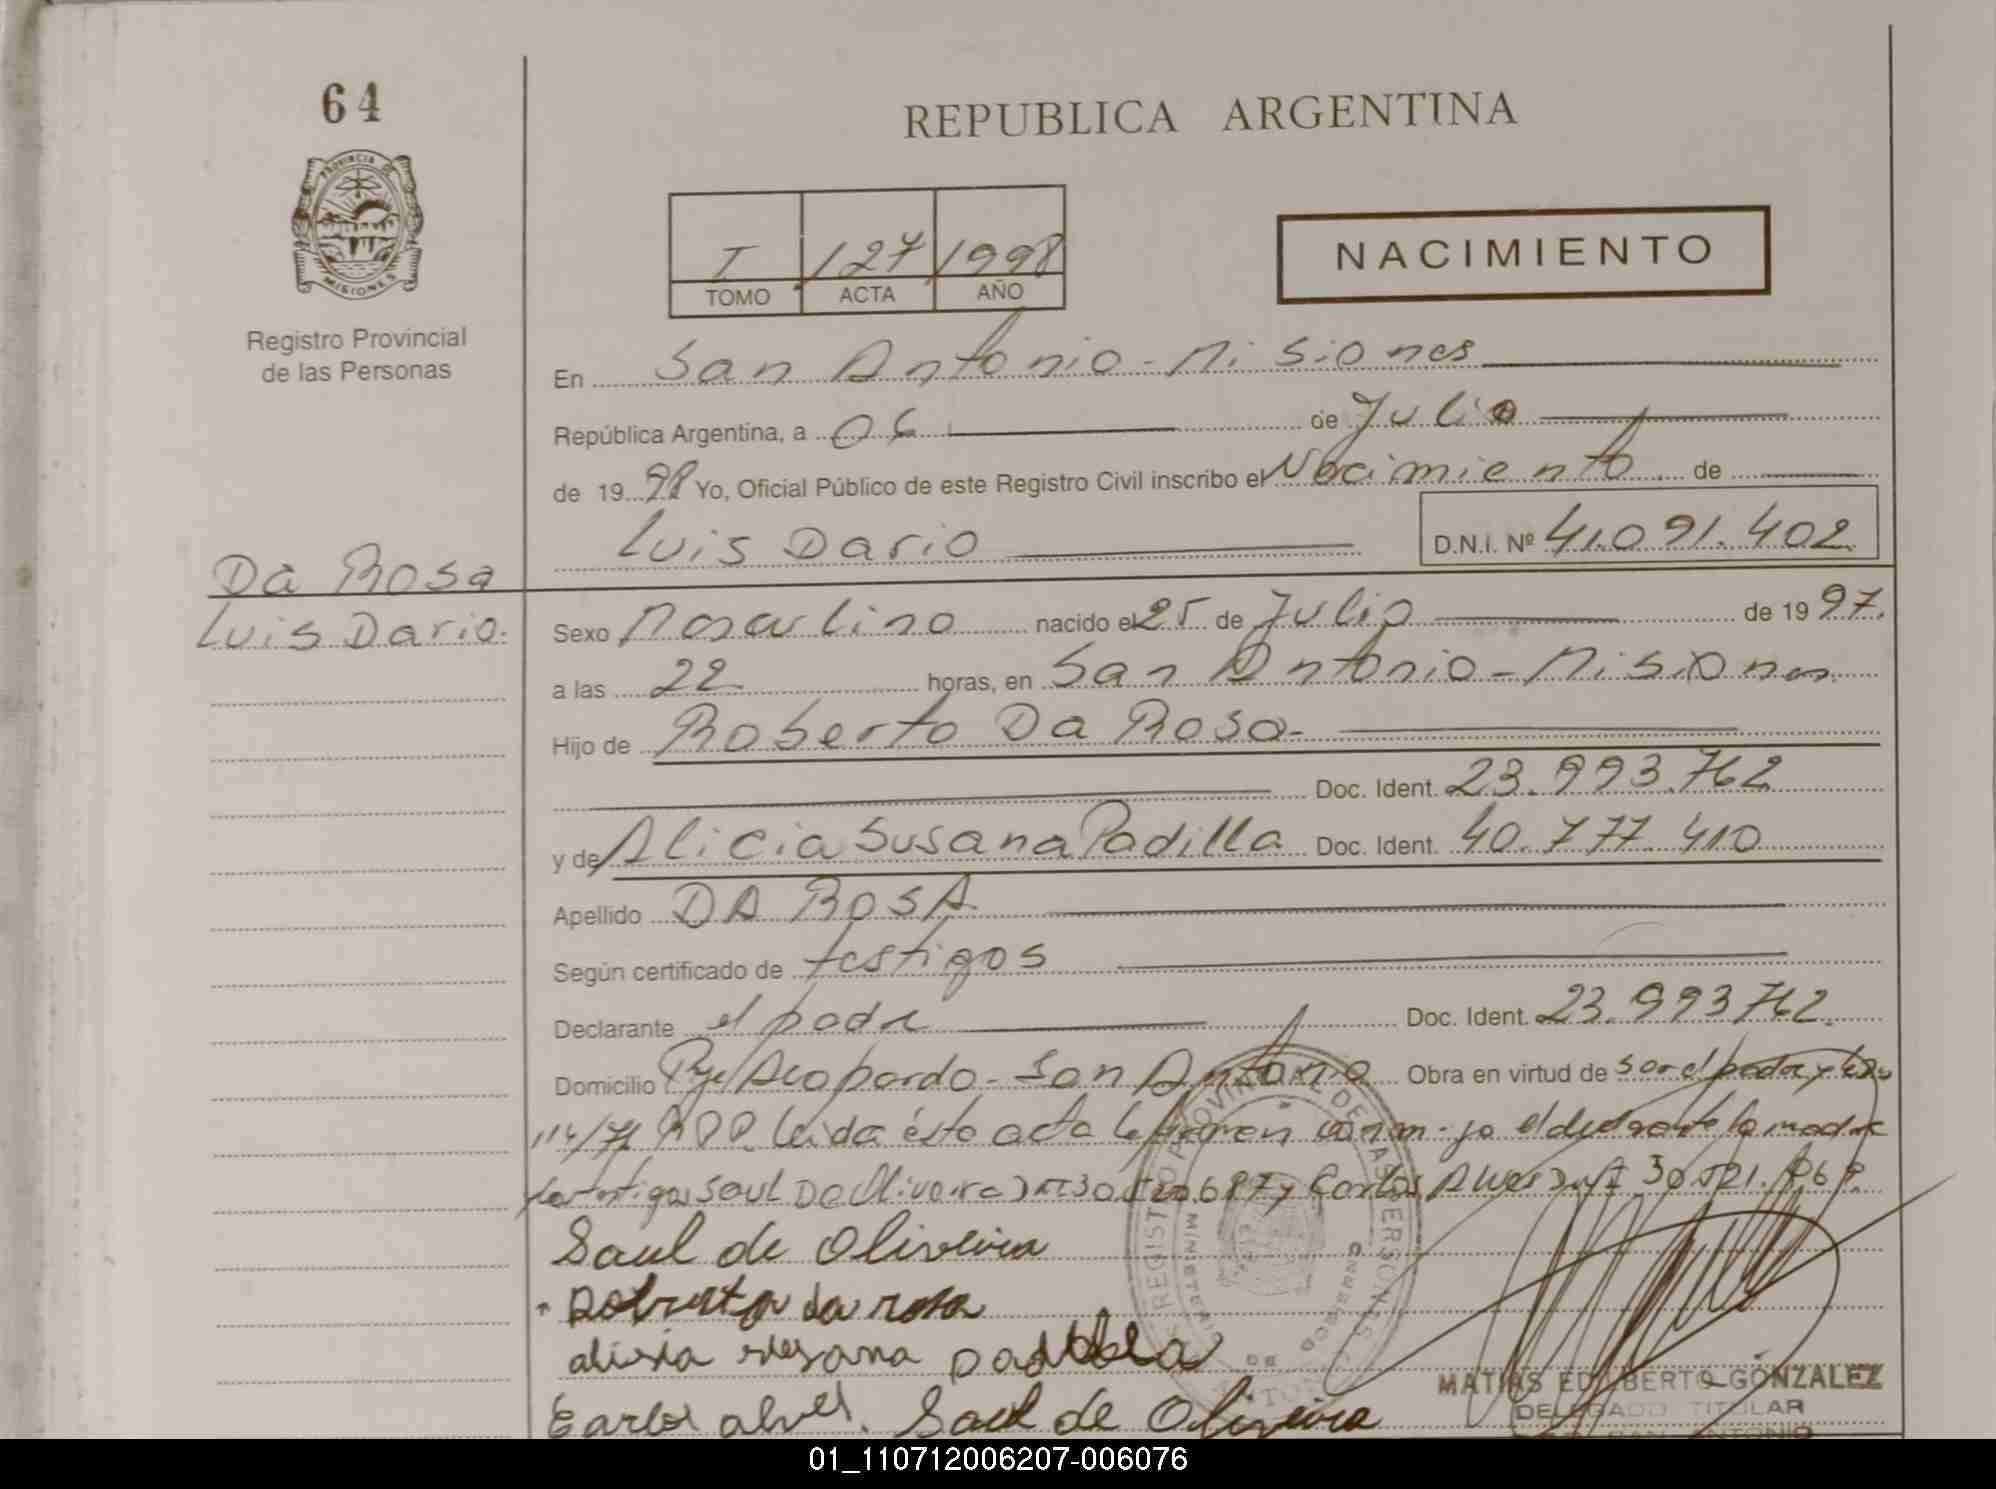 64
REPUBLICA ARGENTINA
PROVINCIA DE
MISIONES
Registro Provincial
de las Personas
I 127 1998
TOMO ACTA AÑO
NACIMIENTO
En San Antonio - Misiones
República Argentina, a 06 de Julio
de 1998 Yo, Oficial Público de este Registro Civil inscribo el Nacimiento de
Luis Dario D.N.I. Nº 41.091.402
Da Rosa
Luis Dario.
Sexo Masculino nacido el 25 de Julio de 1997.
a las 22 horas, en San Antonio - Misiones
Hijo de Roberto Da Rosa
Doc. Ident. 23.993.762
y de Alicia Susana Padilla Doc. Ident. 40.777.410
Apellido DA ROSA
Según certificado de testigos
Declarante el padre Doc. Ident. 23.993762.
Domicilio Pje Acopardo - San Antonio Obra en virtud de ser el padre y
114/76 RPP. leida ésta acta la firman el declarante la madre
los testigos Saul De Oliveira y Carlos Alves
Saul de Oliveira
Roberto da rosa
alisia susana padilla
Carlos alves. Saul de Oliveira
REGISTRO PROVINCIAL DE LAS PERSONAS
MATIAS EDILBERTO GONZALEZ
DELEGADO TITULAR
SAN ANTONIO
01_110712006207-006076